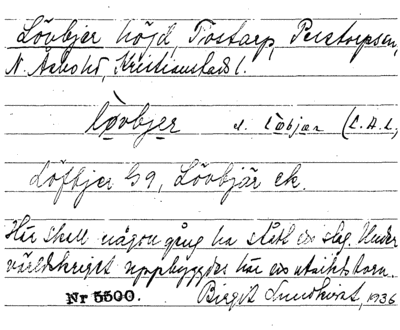 Lövbjer höjd, Trostarp, Perstorps sn,
N. Åsbo hd, Kristianstads l.
lövbjer l. löbjær (L.A.L.)
Löfbjer G9, Lövbjär ek.
Här skall någon gång ha stått ett slag. Under
världskriget uppbyggdes här ett utsiktstorn.
Nr 5500. Birgit Lundkvist, 1936